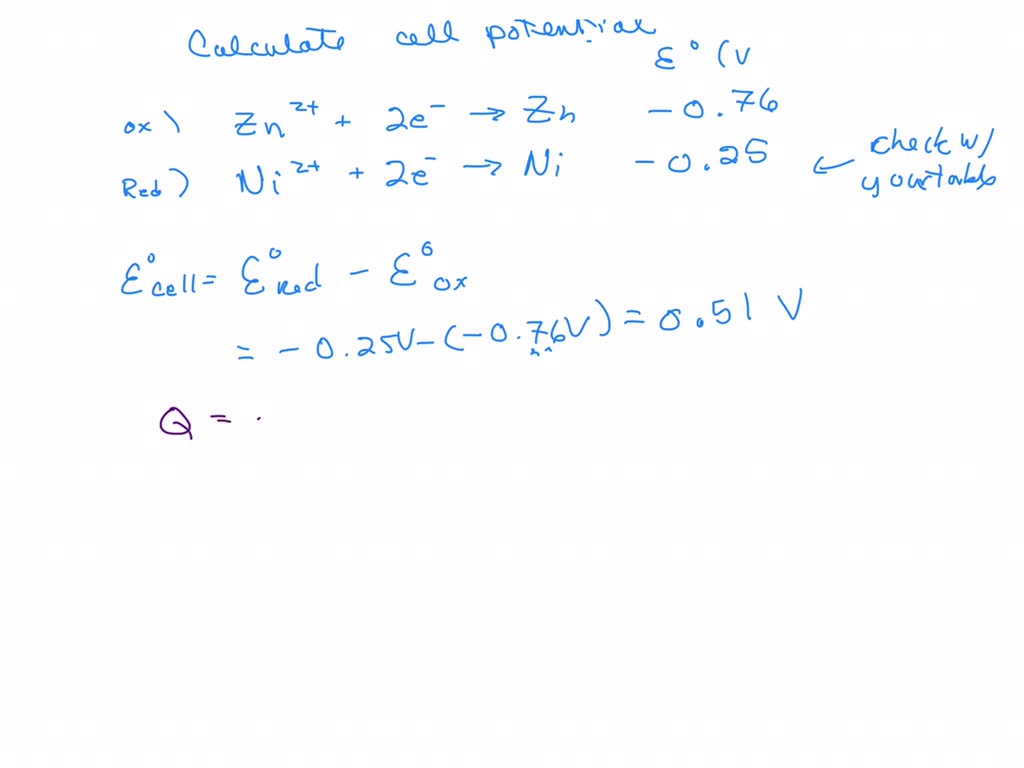 Calculate cell potential
ε° (V
ox) Zn²⁺ + 2e⁻ → Zn −0.76
Red) Ni²⁺ + 2e⁻ → Ni −0.25 ← check w/
your tables
ε°cell = ε°Red − ε°ox
= −0.25V − (−0.76V) = 0.51 V
Q = .